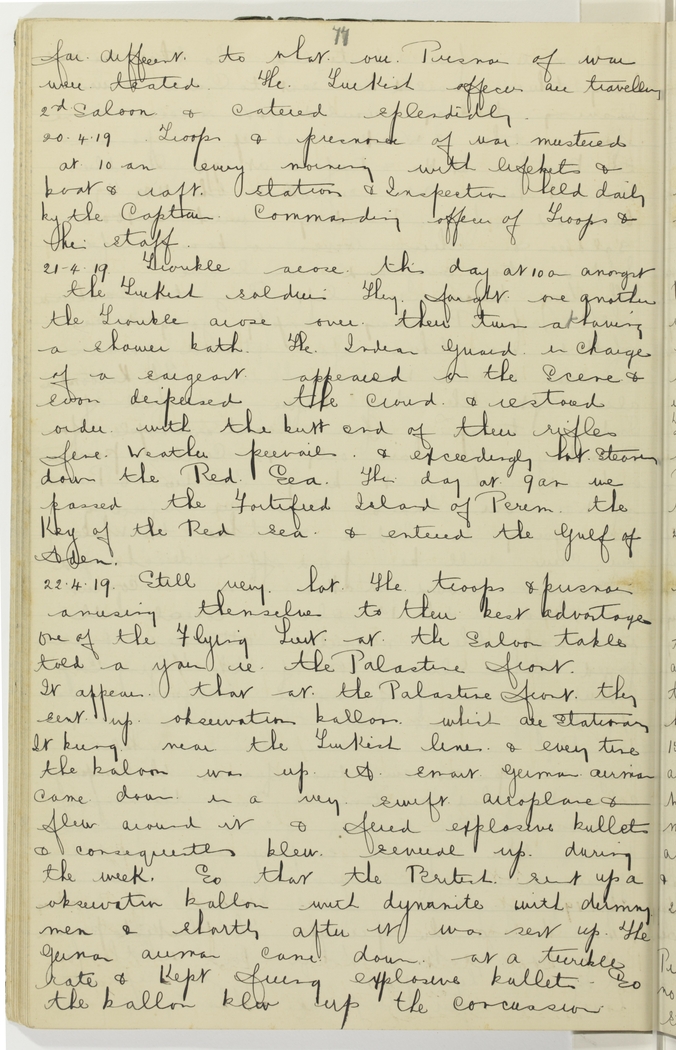 77
far different to what our Prisnor of war
were treated. The Turkish officers are travelling
2nd Saloon & catered splendidly.
20.4.19 Troops & prisnors of war mustered
at 10 am every morning with lifebelts &
boat & raft. stations & Inspection held daily
by the Captain Commanding officer of Troops &
their staff.
21-4.19 Trouble arose this day at 10 a amongst
the Turkish soldiers They fought one another
the Trouble arose over their turn at having
a shower bath. The Indian Guard in charge
of a sargeant appeared on the Scene &
soon dispersed the crowd & restored
order with the butt end of their rifles
fine weather prevails & exceedingly hot. steaming
down the Red Sea. This day at 9 am we
passed the Fortified Island of Perim the
Key of the Red sea & entered the Gulf of
Aden.
22.4.19. Still very hot The troops & prisnors
amusing themselves to their best advantage
one of the Flying Lieut. at the Saloon table
told a yarn re. the Palastine front.
It appears that at the Palastine front they
sent up observation ballons which are stationary
It being near the Turkish lines & every time
the baloon was up. A smart German airman
came down in a very swift aeroplane &
flew around it & fired explosive bullets
& consequently blew several up during
the week. So that the British sent up a
observation ballon with dynamite with dummy
men & shortly after it was sent up. The
German airman came down at a terrible
rate & kept firing explosive bullets - So
the ballon blew up the concussion